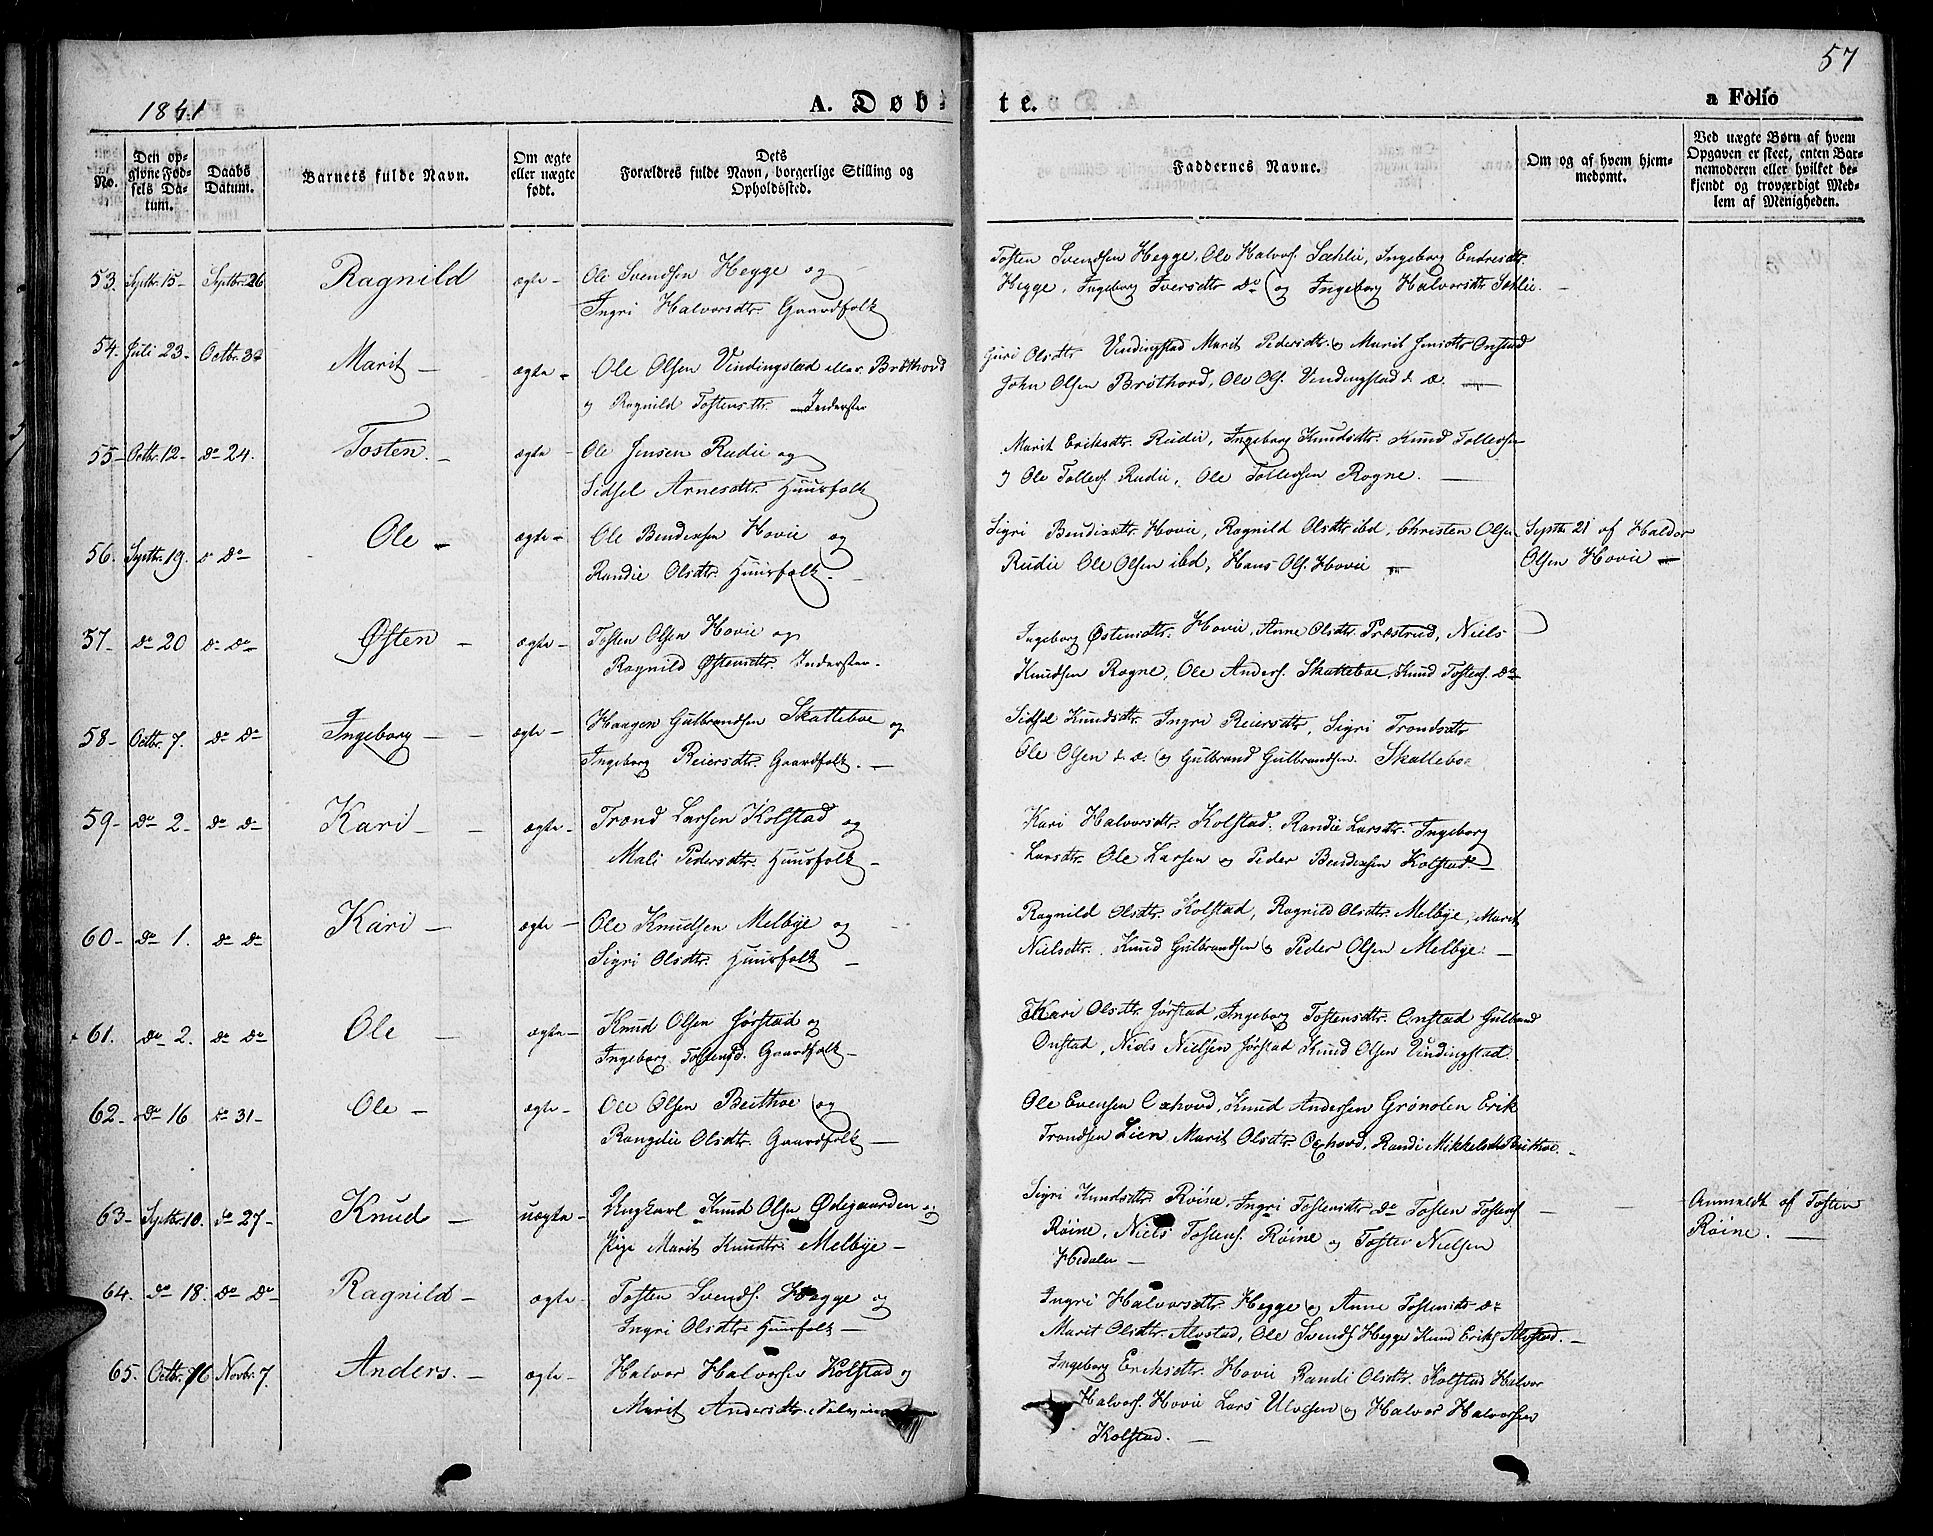 57
1841
A. Døbte.
a Folio
No.
Den opgivne Fødsels Datum.
Daabs Datum.
Barnets fulde Navn.
Om ægte eller uægte født.
Dets Forældres fulde Navn, borgerlige Stilling og Opholdssted.
Faddernes Navne.
Om og af hvem hjemmedømt.
Ved uægte Børn af hvem Opgaven er skeet, enten Barnemoderen eller hvilket bekjendt og troværdigt Medlem af Menigheden.
53. Septbr. 15 - Septbr. 26 Ragnild ægte - Ole Svendsen Hegge og
Ingri Halvorsdtr. Gaardfolk
Tosten Svendsen Hegge, Ole Halvors. Sæhlie, Ingeborg Endresdtr.
Hegge, Ingeborg Iversdtr. do og Ingeborg Halvorsdtr Sæhlie. -
54. Juli 23 - Octbr. Marit - ægte - Ole Olsen Vindingstad eller Bröthovd
og Ragnild Tostensdtr. Inderster
Guri Olsdtr. Vindingstad Marit Pedersdtr. og Marit Jensdtr Onstad
John Olsen Bröthovd, Ole Ols. Vindingstad d. æ. -
55 - Octbr. 12 - do 24. Tosten. - ægte - Ole Jensen Rudie og
Sidsel Arnesdtr. Huusfolk
Marit Eriksdtr. Rudie, Ingeborg Knudsdtr. Knud Tollevsen
og Ole Tollevs. Rudie, Ole Tollevsen Rogne. -
56. Septbr. 19. do Ole - ægte - Ole Bendixsen Hovie og
Randie Olsdtr. Huusfolk. -
Sigri Bendixsdtr. Hovie, Ragnild Olsdtr. ibd, Christen Olsen
Rudie Ole Olsen ibd, Hans Ols. Hovie -
Septbr. 21 af Halvor
Olsen Hovie -
57 - do 20 do do Østen - ægte - Tosten Olsen Hovie og
Ragnild Østensdtr. Inderster.
Ingeborg Østensdtr. Hovie, Anne Olsdtr. Præstrud, Niels
Knudsen Rogne, Ole Anders. Skatteboe, Knud Tostens. do
58 - Octbr. 7. do do Ingeborg - ægte - Haagen Gulbrandsen Skatteboe og
Ingeborg Reiersdtr. Gaardfolk. -
Sidsel Knudsdtr. Ingri Reiersdtr, Sigri Trondsdtr
Ole Olsen d. æ. og Gulbrand Gulbrandsen. Skatteboe
59 - do 2 - do do Kari - ægte - Trond Larsen Kolstad og
Mali Pedersdtr. Huusfolk -
Kari Halvorsdtr. Kolstad. Randie Larsdtr. Ingeborg
Larsdtr. Ole Larsen og Peder Bendixsen Kolstad. -
60 - do 1. do do Kari - ægte - Ole Knudsen Melbye og
Sigri Olsdtr. Huusfolk -
Ragnild Olsdtr. Kolstad, Ragnild Olsdtr. Melbye, Marit
Nielsdtr., Knud Gulbrandsen og Peder Olsen Melbye. -
61. do 2. do do Ole - ægte - Knud Olsen Jørstad og
Ingeborg Tostensd. Gaardfolk -
Kari Olsdtr. Jørstad, Ingeborg Tostensdtr. Onstad Gulbrand
Onstad, Niels Nielsen Jørstad Knud Olsen Vindingstad.
62 - do 16 do 31 - Ole - ægte - Ole Olsen Beithoe og
Rangdie Olsdtr. Gaardfolk -
Ole Evensen Oxhovd, Knud Andersen Grönolen Erik
Trondsen Lien, Marit Olsdtr. Oxhovd, Randi Mikkelsdtr Beithoe. -
63 - Septbr. 10. do 27 - Knud - uægte - Ungkarl Knud Olsen Ødegaarden og
Pige Marit Knudsdtr. Melbye -
Sigri Knudsdtr. Röine, Ingri Tostensdtr. do Tosten Tostens.
Röine, Niels Tostens. Röine og Tosten Nielsen
Hedalen -
Anmeldt af Tosten
Röine. -
64. do 18. do do Ragnild - ægte - Tosten Svends. Hegge og
Ingri Olsdtr. Huusfolk -
Ingri Halvorsdtr. Hegge og Anne Tostensdtr do
Marit Olsdtr. Alvstad, Ole Svends. Hegge Knud Eriks. Alvstad. -
65. Octbr. 16 Novbr. 7. Anders. - ægte - Halvor Halvorsen Kolstad og
Marit Andersdtr.
Ingeborg Eriksdtr. Hovie Randi Olsdtr. Kolstad Halvor
Halvors. Hovie Lars Ulvesen og Halvor Halvorsen
Kolstad. -